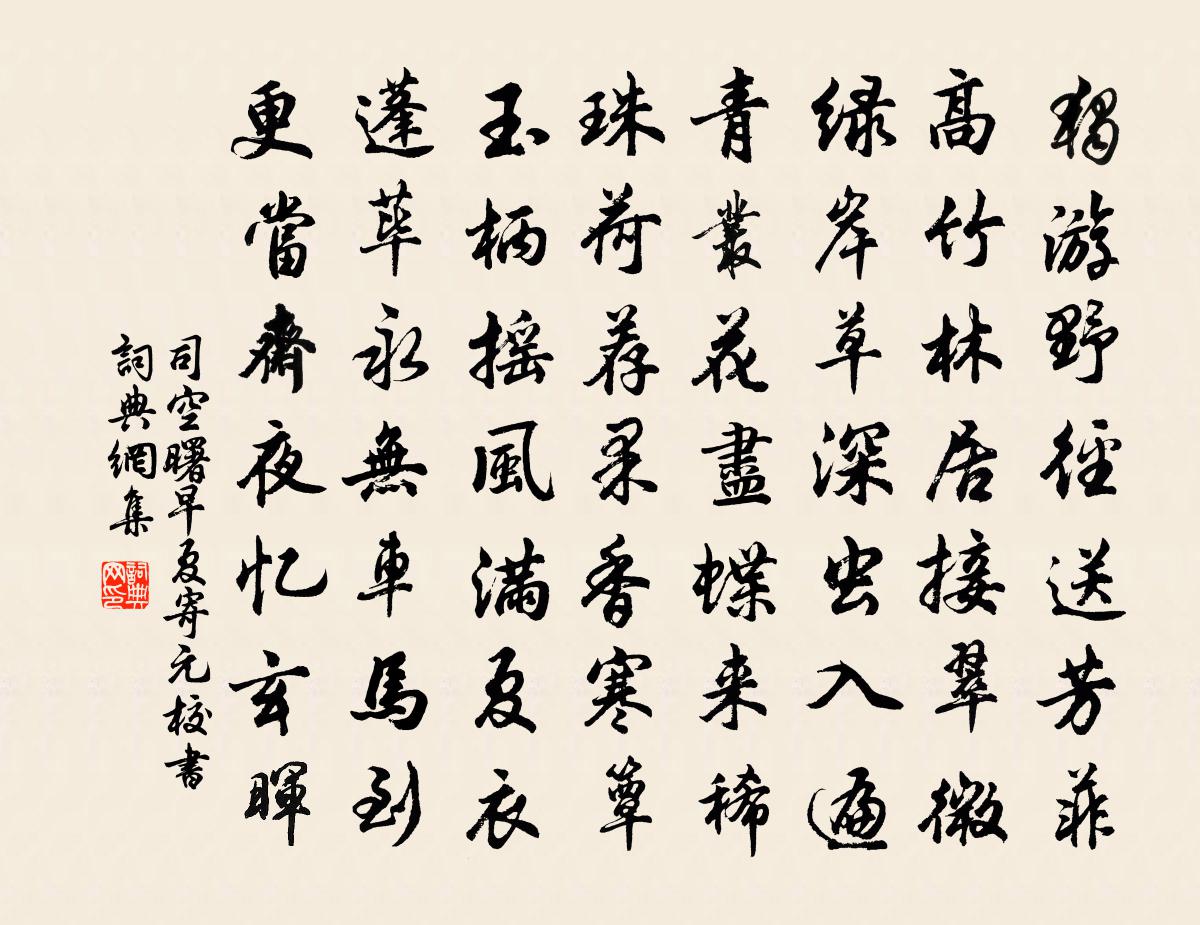 獨游野徑送芳菲
高竹林居接翠微
绿岸草深虫入遍
青叢花盡蝶来稀
珠荷荐果香寒簟
玉柄摇風滿夏衣
蓬蓽永無車馬到
更當齋夜忆玄暉
司空曙早夏寄元校書
詞典網集
詞典网印